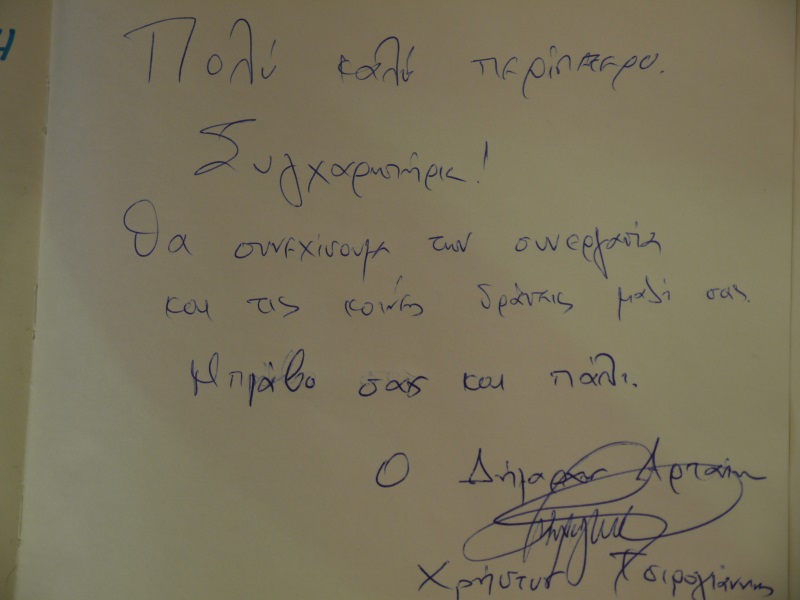 Πολύ καλό περίπτερο.
Συγχαρητήρια!
Θα συνεχίσουμε την συνεργασία
και τις κοινές δράσεις μαζί σας.
Μπράβο σας και πάλι.
Ο Δήμαρχος Αρταίων
Χρήστος Τσιρογιάννης